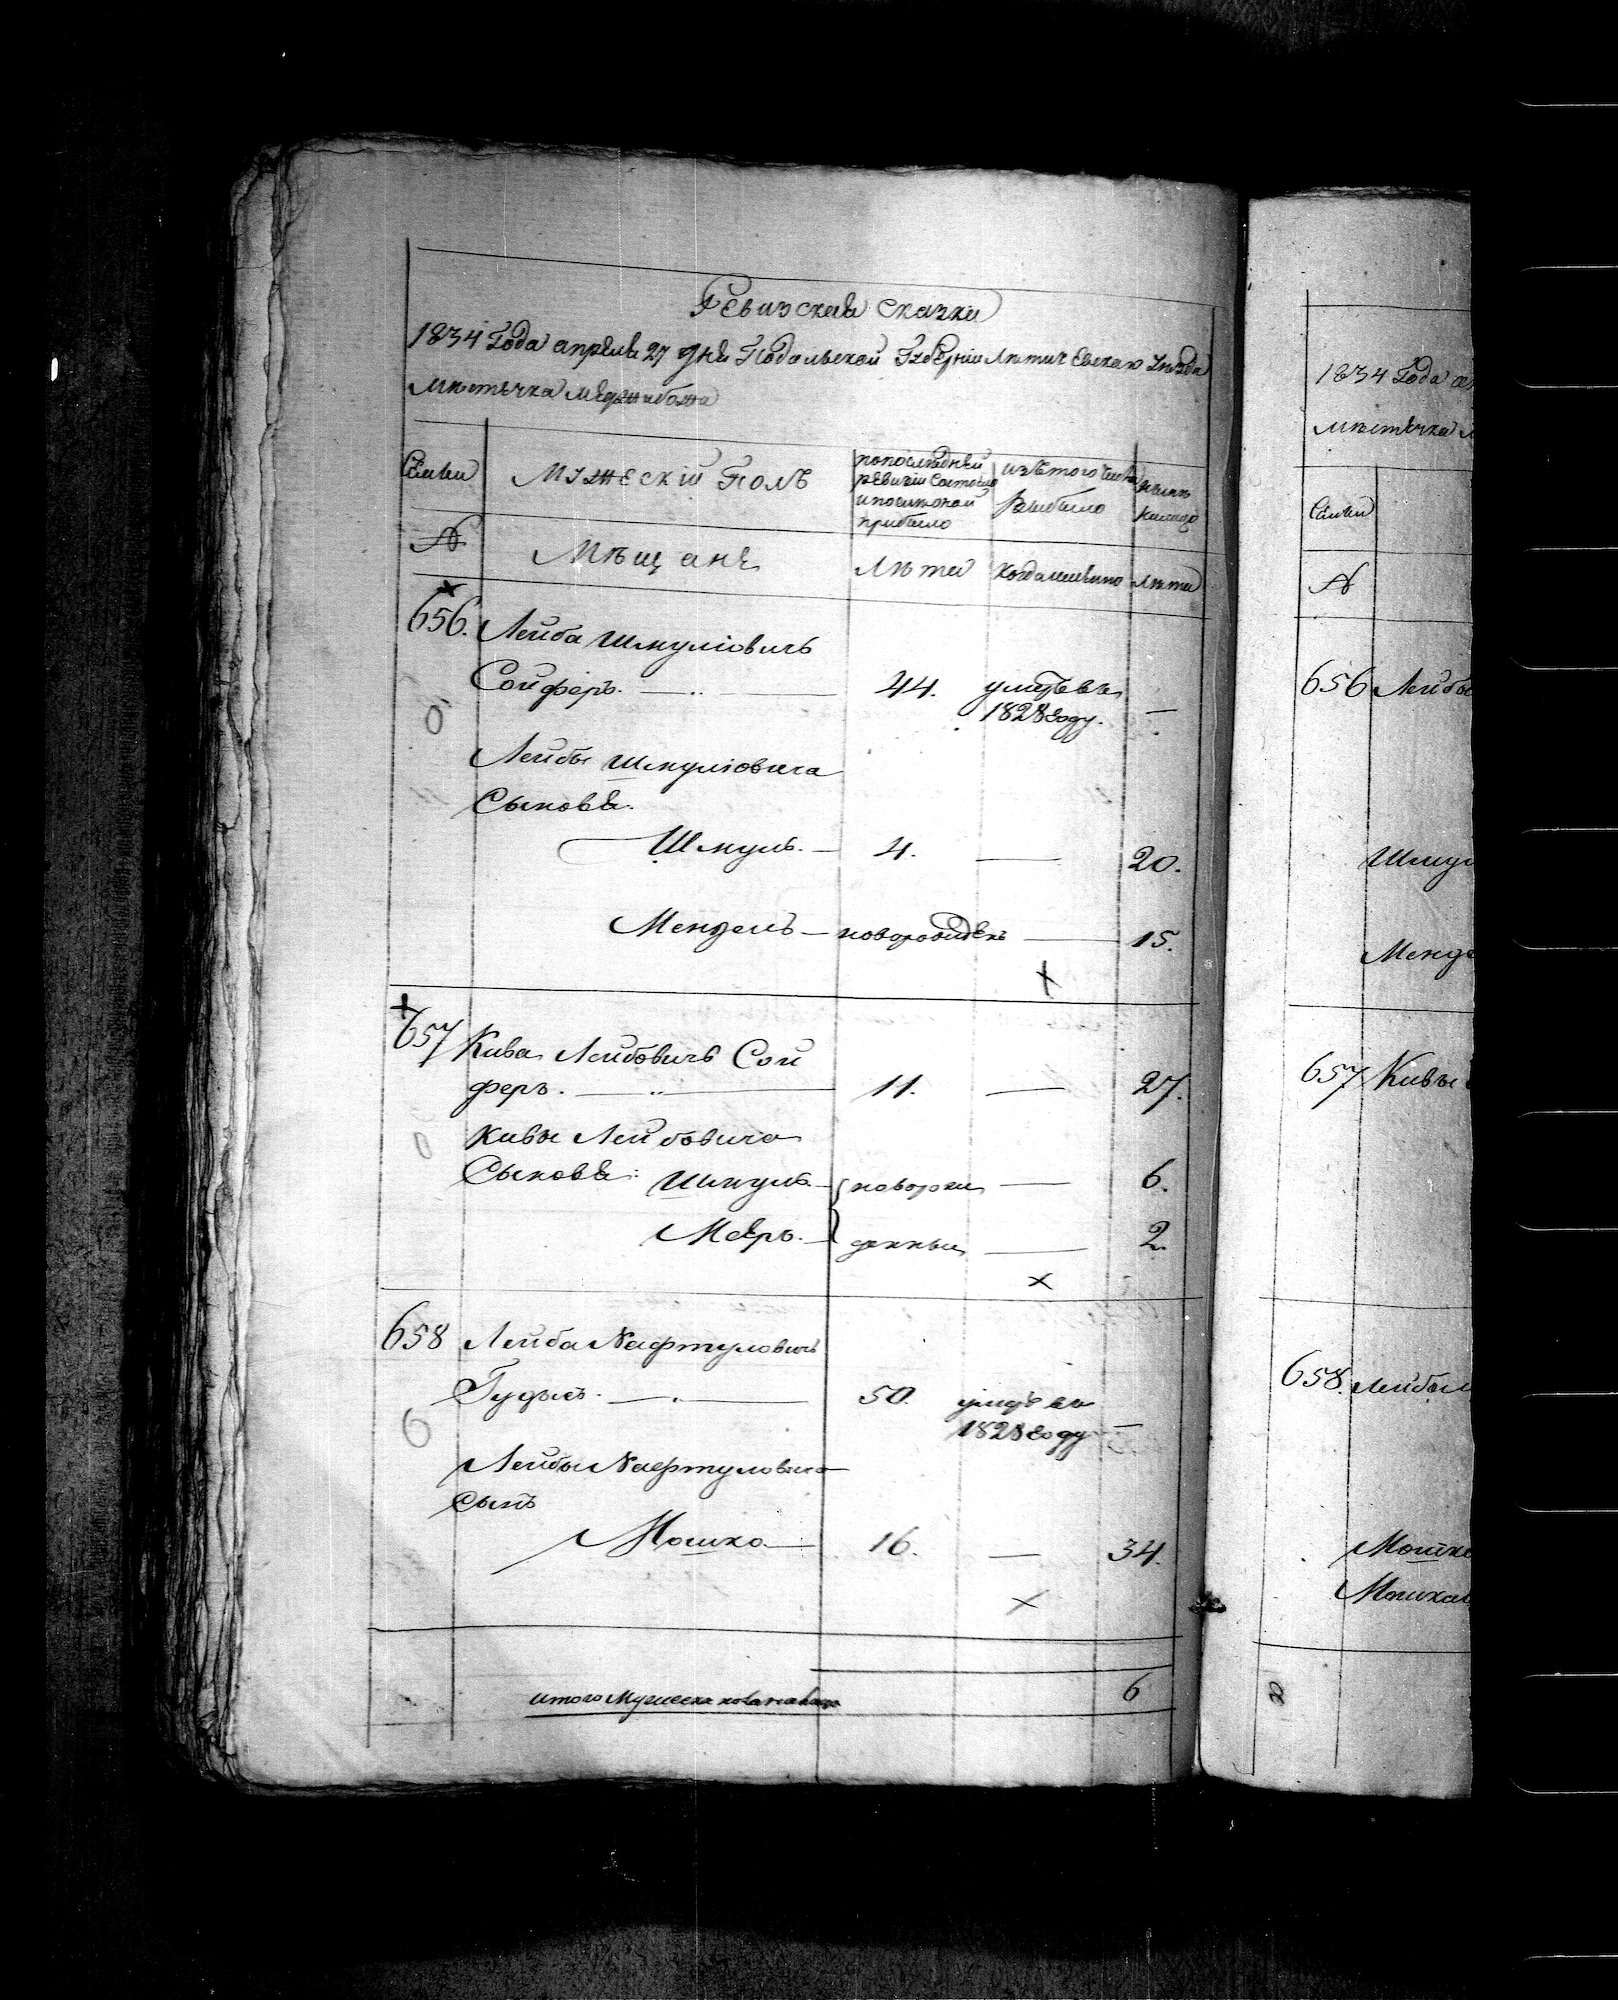 Ревизския сказки
1834 Года апреля 27 дня Подольской Губернии Летичевскаго Уезда
местечка Меджибожа
Семьи
Мужескій Полъ
по последней
ревизіи состояло
и после оной
прибыло
изъ того числа
выбыло
ныне
на лицо
№
Мещане
Лета
когда именно
лета
656. Лейба Шмуліовичъ
Сойферъ. 44. умре въ
1828 году. —
Лейбы Шмуліовича
Сыновья.
Шмуль. 4. — 20.
Мендель новорожденъ — 15.
657 Кива Лейбовичъ Сой
феръ. 11. — 27.
Кивы Лейбовича
Сыновья: Шмуль новорож — 6.
Меръ. денныи — 2.
658 Лейба Нафтуловичъ
Гудысъ. 50. умре въ
1828 году —
Лейбы Нафтуловича
сынъ
Мошко 16. — 34.
итого Мужеска пола налицо 6
1834 Года
местечка
Семьи
№
656 Лейбы
Шмул
Менде
657 Кивы
658. Лейбы
Мошко
Мошка